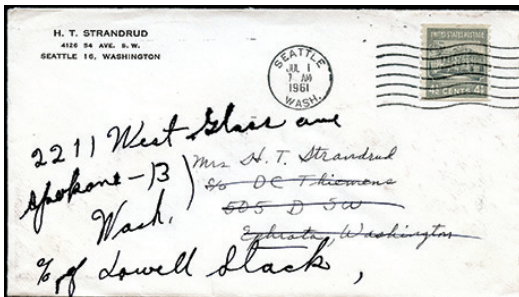 H. T. STRANDRUD
4126 54 AVE. S. W.
SEATTLE 16, WASHINGTON
SEATTLE
JUL 1
7 AM
1961
WASH.
UNITED STATES POSTAGE
4½ CENTS 4½
2211 West Glass ave
Spokane-13
Wash.
Mrs H. T. Strandrud
c/o DC Thiemens
605 D SW
Ephrata, Washington
c/o Lowell Stack,